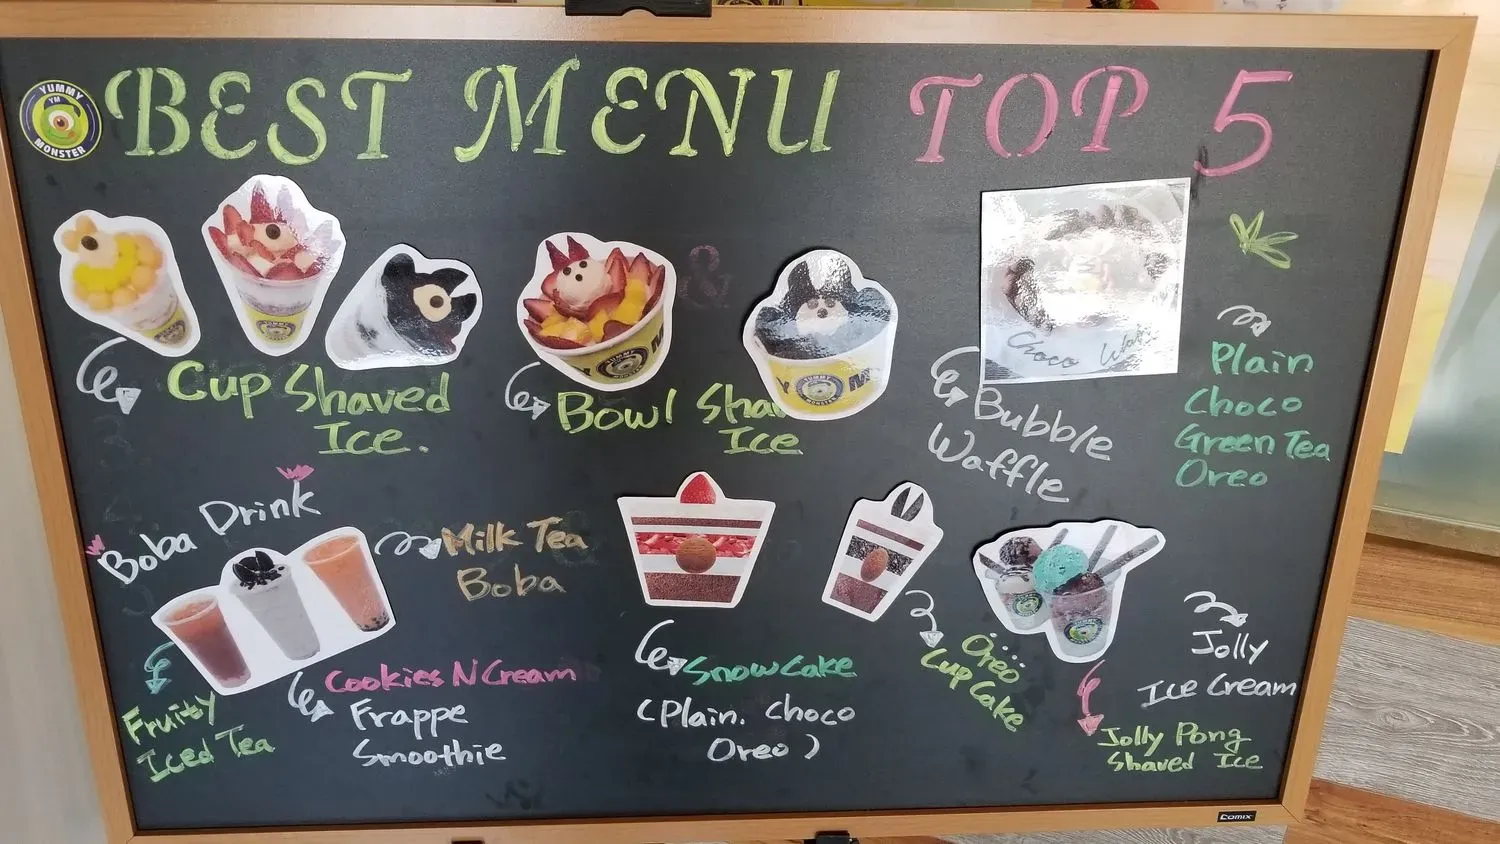 YUMMY
YM
MONSTER
BEST MENU TOP 5
Cup Shaved
Ice.
&
Bowl Sha
Ice
Choco
Bubble
Waffle
Plain
Choco
Green Tea
Oreo
Boba Drink
Milk Tea
Boba
Fruity
Iced Tea
Cookies N Cream
Frappe
Smoothie
Snow Cake
(Plain. Choco
Oreo)
Oreo
Cup Cake
Jolly
Ice Cream
Jolly Pong
Shaved Ice
COMIX